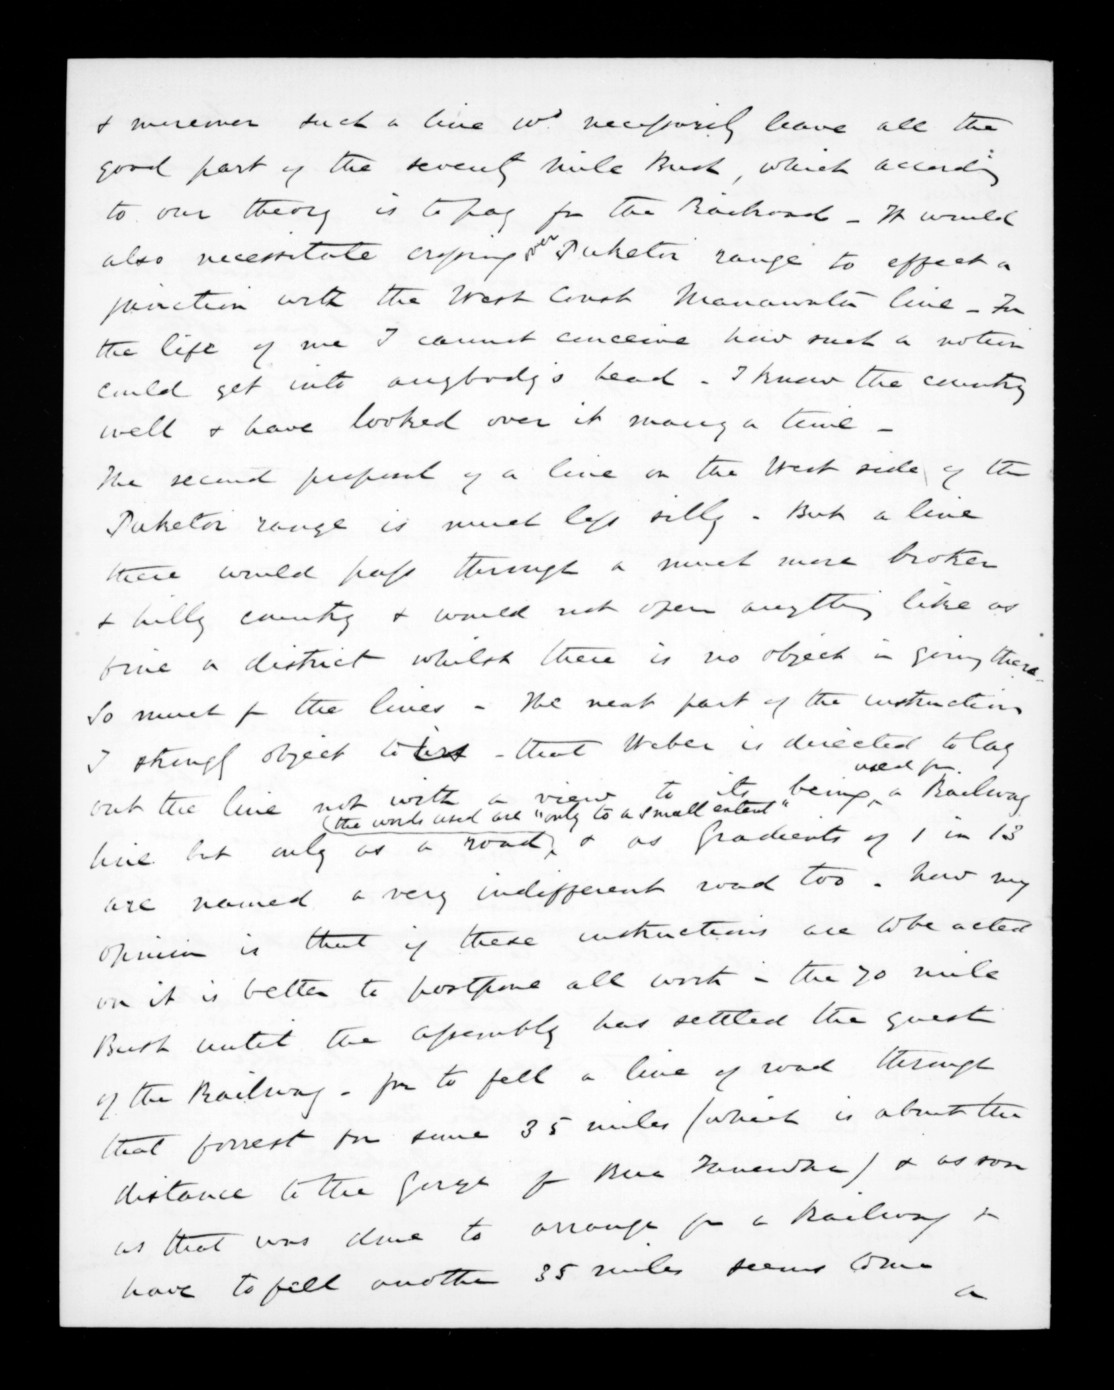 & moreover such a line wd necessarily leave all the
good part of the seventy mile Bush, which accordg
to our theory is to pay for the Railroad - It would
also necessitate crossing over Puketoi range to effect a
junction with the West Coast Manawatu line - For
the life of me I cannot conceive how such a notion
could get into anybody's head - I know the country
well & have looked over it many a time -
The second proposal of a line on the West side of the
Puketoi range is much less silly - But a line
there would pass through a much more broken
& hilly country & would not open anything like as
fine a district whilst there is no object in going there -
So much for the lines - The next part of the instructions
I strongly object to is - that Weber is directed to lay
out the line not with a view to its being used for a Railway
line but only as a road (the words used are "only to a small extent") & as Gradients of 1 in 13
are named a very indifferent road too - Now my
opinion is that if these instructions are to be acted
on it is better to postpone all work in the 70 mile
Bush until the assembly has settled the quest
of the Railway - for to fell a line of road through
that forrest for some 35 miles (which is about the
distance to the Gorge fr Rua Taniwha) & as soon
as that was done to arrange for a Railway &
have to fell another 35 miles seems to me
a